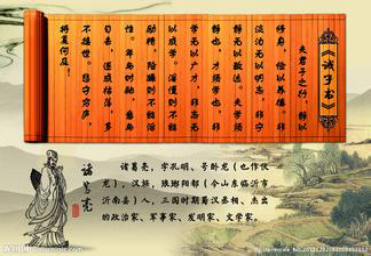 《诫子书》
夫君子之行，静以
修身，俭以养德。非
淡泊无以明志，非宁
静无以致远。夫学须
静也，才须学也，非
学无以广才，非志无
以成学。淫慢则不能
励精，险躁则不能冶
性。年与时驰，意与
日去，遂成枯落，多
不接世，悲守穷庐，
将复何及！
诸葛亮
诸葛亮，字孔明、号卧龙（也作伏
龙），汉族，琅琊阳都（今山东临沂市
沂南县）人，三国时期蜀汉丞相、杰出
的政治家、军事家、发明家、文学家。